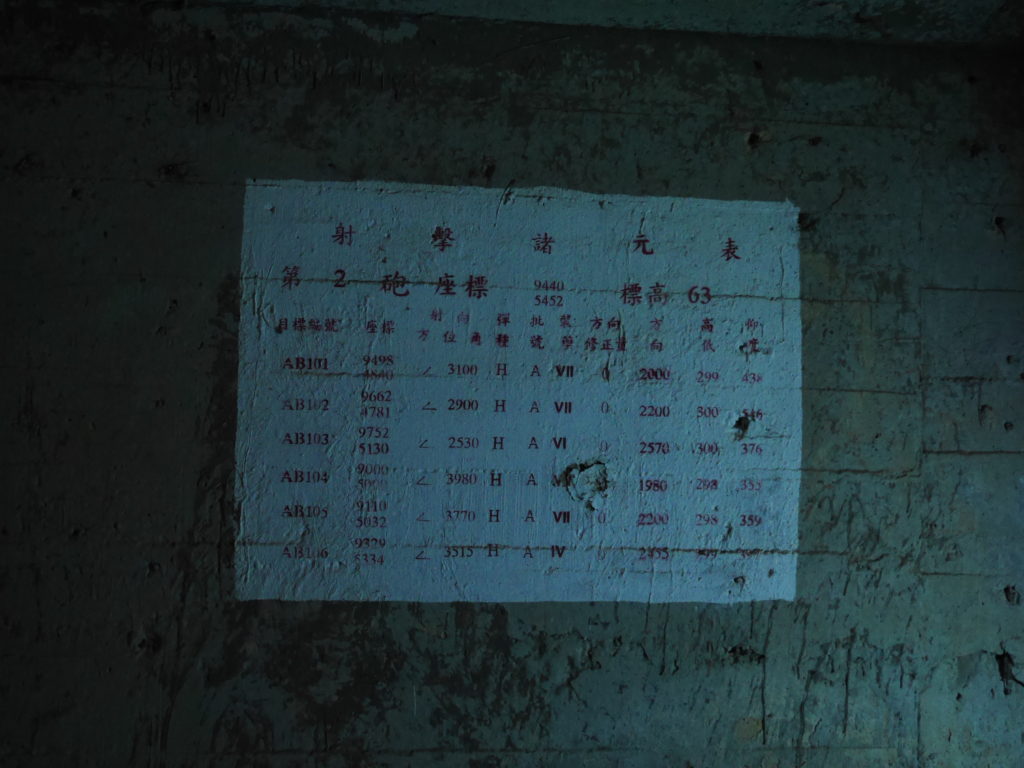 射擊諸元表
第 2 砲 座標 9440 5452 標高 63
目標編號 座標 射向方位角 彈種 批號 裝藥 方向修正量 方向 高低 仰度
AB101 9498 4840 ∠ 3100 H A VII 0 2000 299
AB102 9662 4781 ∠ 2900 H A VII 0 2200 300
AB103 9752 5130 ∠ 2530 H A VI 0 2570 300 376
AB104 9000 ∠ 3980 H A 1980 298
AB105 9110 5032 ∠ 3770 H A VII 0 2200 298 359
AB106 9329 5334 ∠ 3515 H A IV 2455